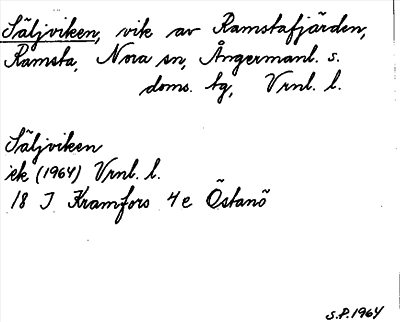 Säljviken, vik av Ramstafjärden,
Ramsta, Nora sn, Ångermanl. s.
doms. tg, Vrnl. l.
Säljviken
ek (1964) Vrnl. l.
18 J Kramfors 4 e Östanö
S.P. 1964